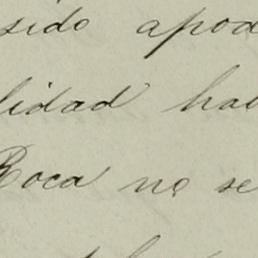 sido apod
lidad hab
Roca no se